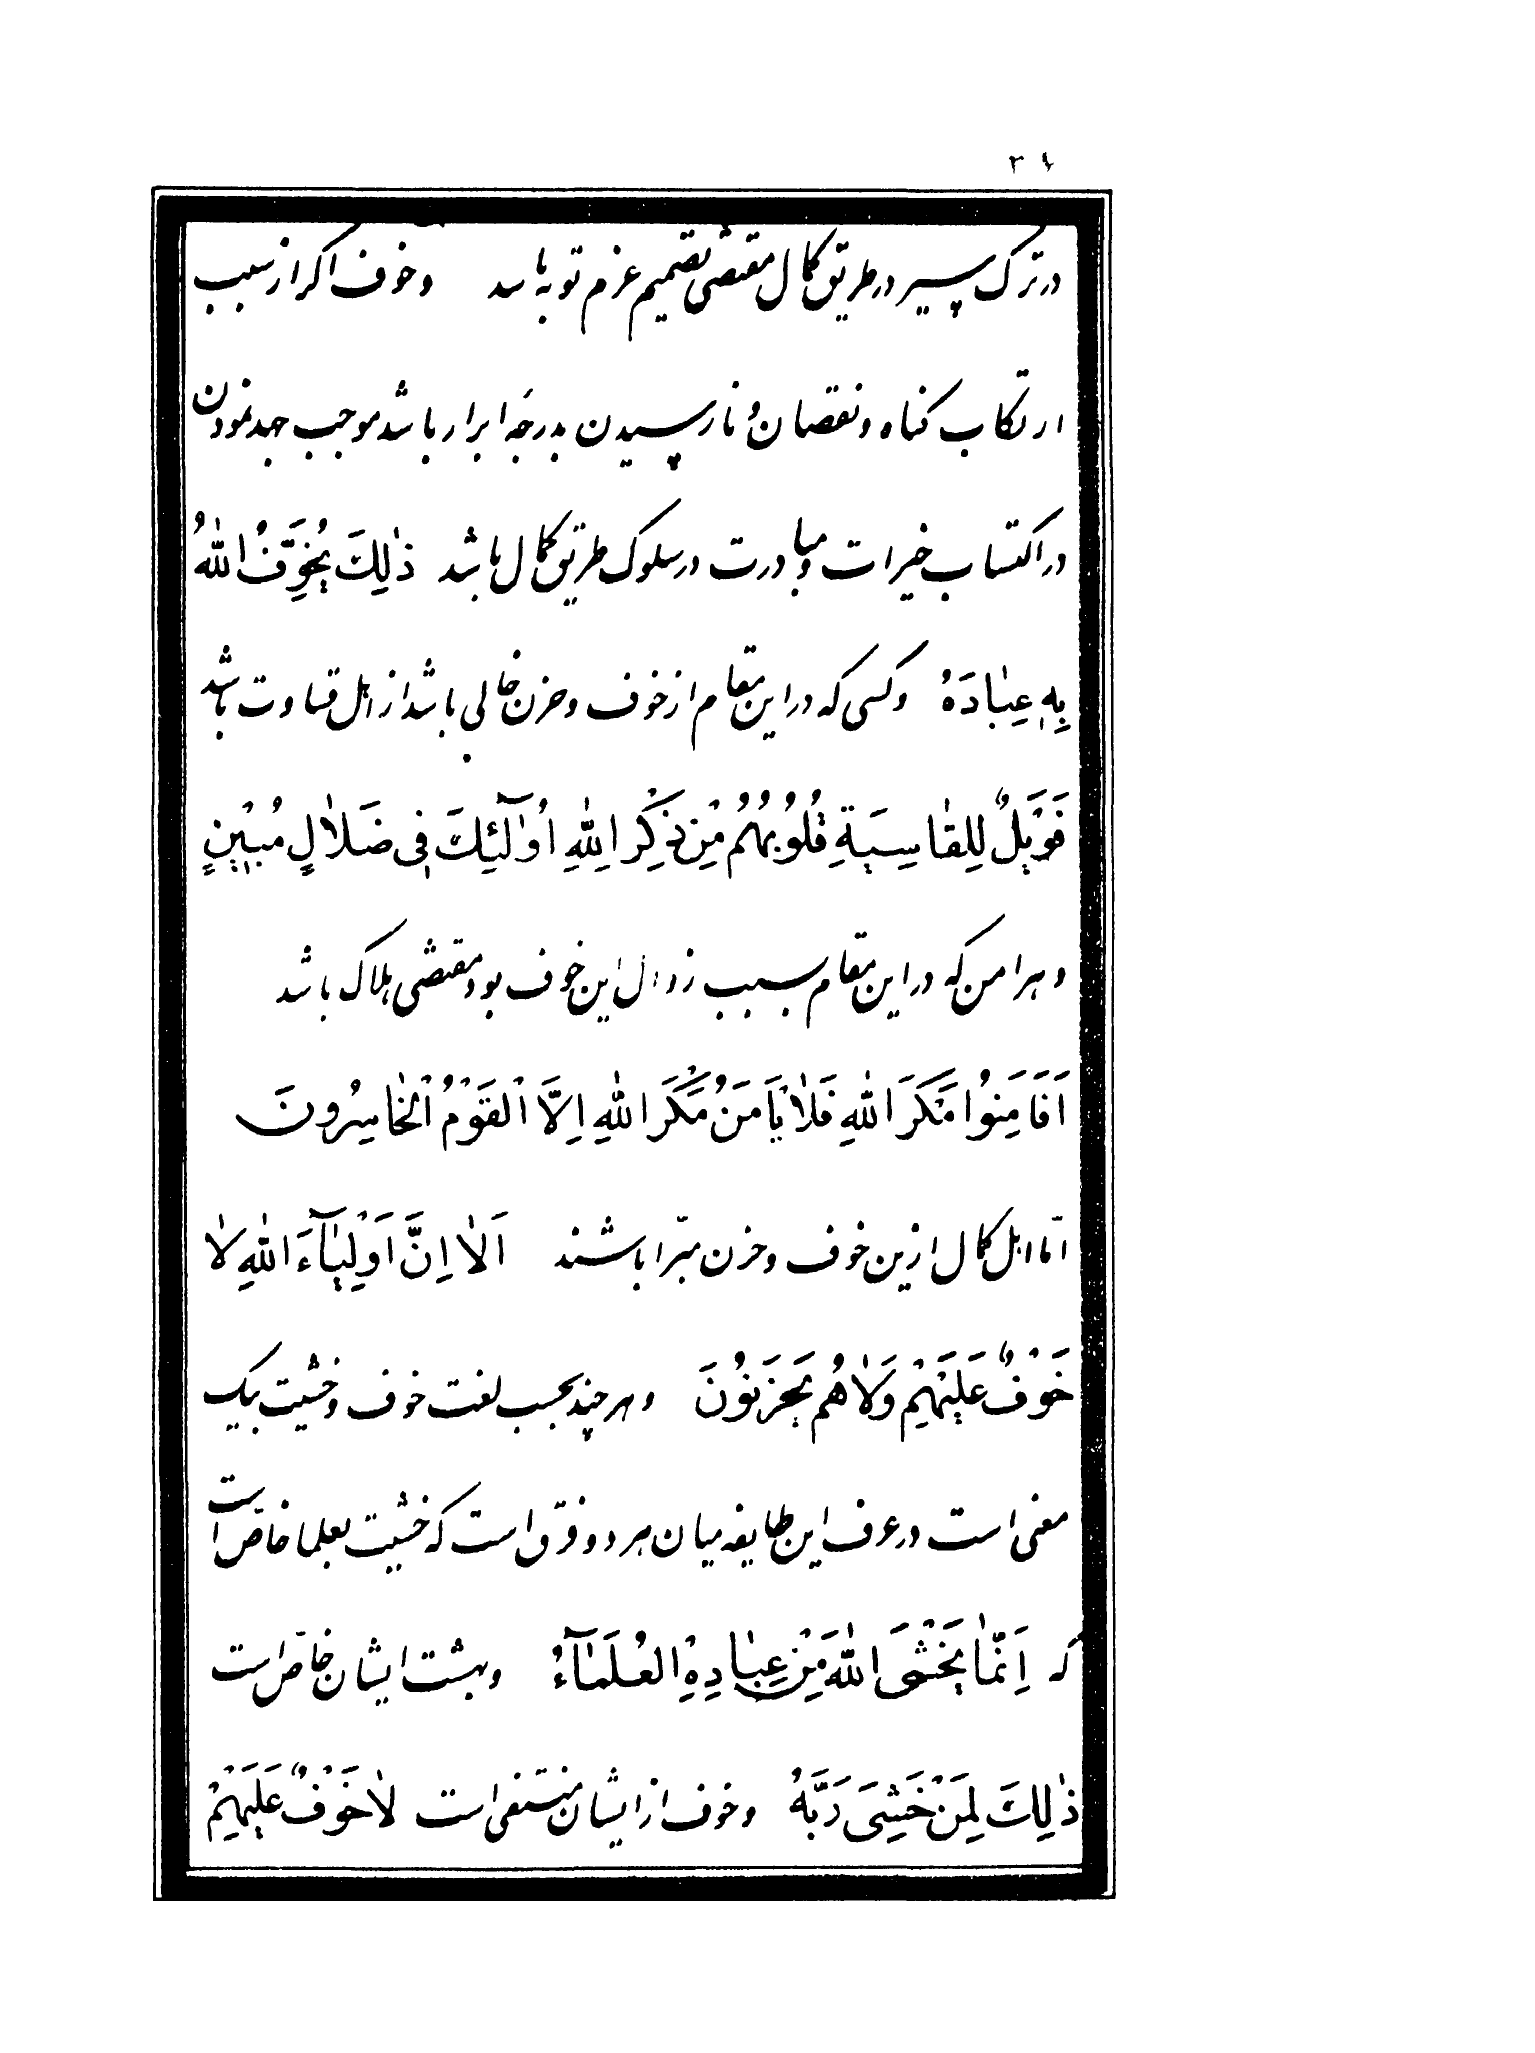 در ترک سیر در طریق کمال مقتضی تصمیم عزم توبه باشد و خوف اگر از سبب
ارتکاب گناه و نقصان و نارسیدن بدرجهٔ ابرار باشد موجب جهد نمودن
در اکتساب خیرات و مبادرت در سلوک طریق کمال باشد ذٰلِکَ یُخَوِّفُ اللّٰهُ
بِهِ عِبٰادَهُ و کسی که در این مقام از خوف و حزن خالی باشد از اهل قساوت باشد
فَوَیْلٌ لِلقٰاسِیَةِ قُلُوبُهُمْ مِنْ ذِکْرِ اللّٰهِ اُولٰٓئِکَ فِی ضَلٰالٍ مُبِینٍ
و هر امن که در این مقام بسبب زوال این خوف بود مقتضی هلاک باشد
اَفَاَمِنُوا مَکْرَ اللّٰهِ فَلٰا یَاْمَنُ مَکْرَ اللّٰهِ اِلَّا الْقَوْمُ الْخٰاسِرُونَ
امّا اهل کمال ازین خوف و حزن مبّرا باشند اَلٰا اِنَّ اَوْلِیٰآءَ اللّٰهِ لٰا
خَوْفٌ عَلَیْهِمْ وَلٰا هُمْ یَحْزَنُونَ و هر چند بحسب لغت خوف و خشیت بیک
معنی است در عرف این طایفه میان هر دو فرق است که خشیت بعلما خاصّ است
که اِنَّمٰا یَخْشَی اللّٰهَ مِنْ عِبٰادِهِ الْعُلَمٰآءُ و بهشت ایشان خاصّ است
ذٰلِکَ لِمَنْ خَشِیَ رَبَّهُ و خوف از ایشان منتفی است لٰا خَوْفٌ عَلَیْهِمْ